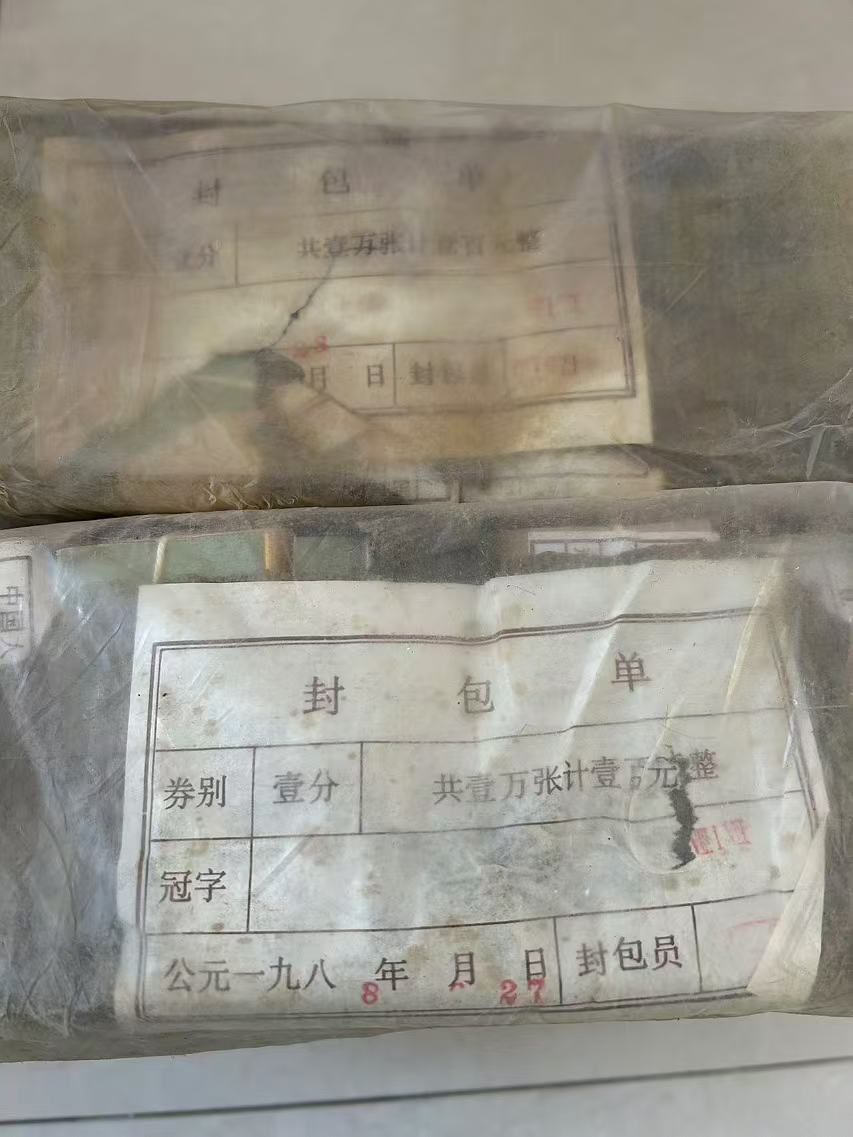 封 包 单
分 共壹万张计壹百元整
月 日 封
中国人
封 包 单
券别 壹分 共壹万张计壹百元整
冠字
公元一九八 年 月 日 封包员
8 27